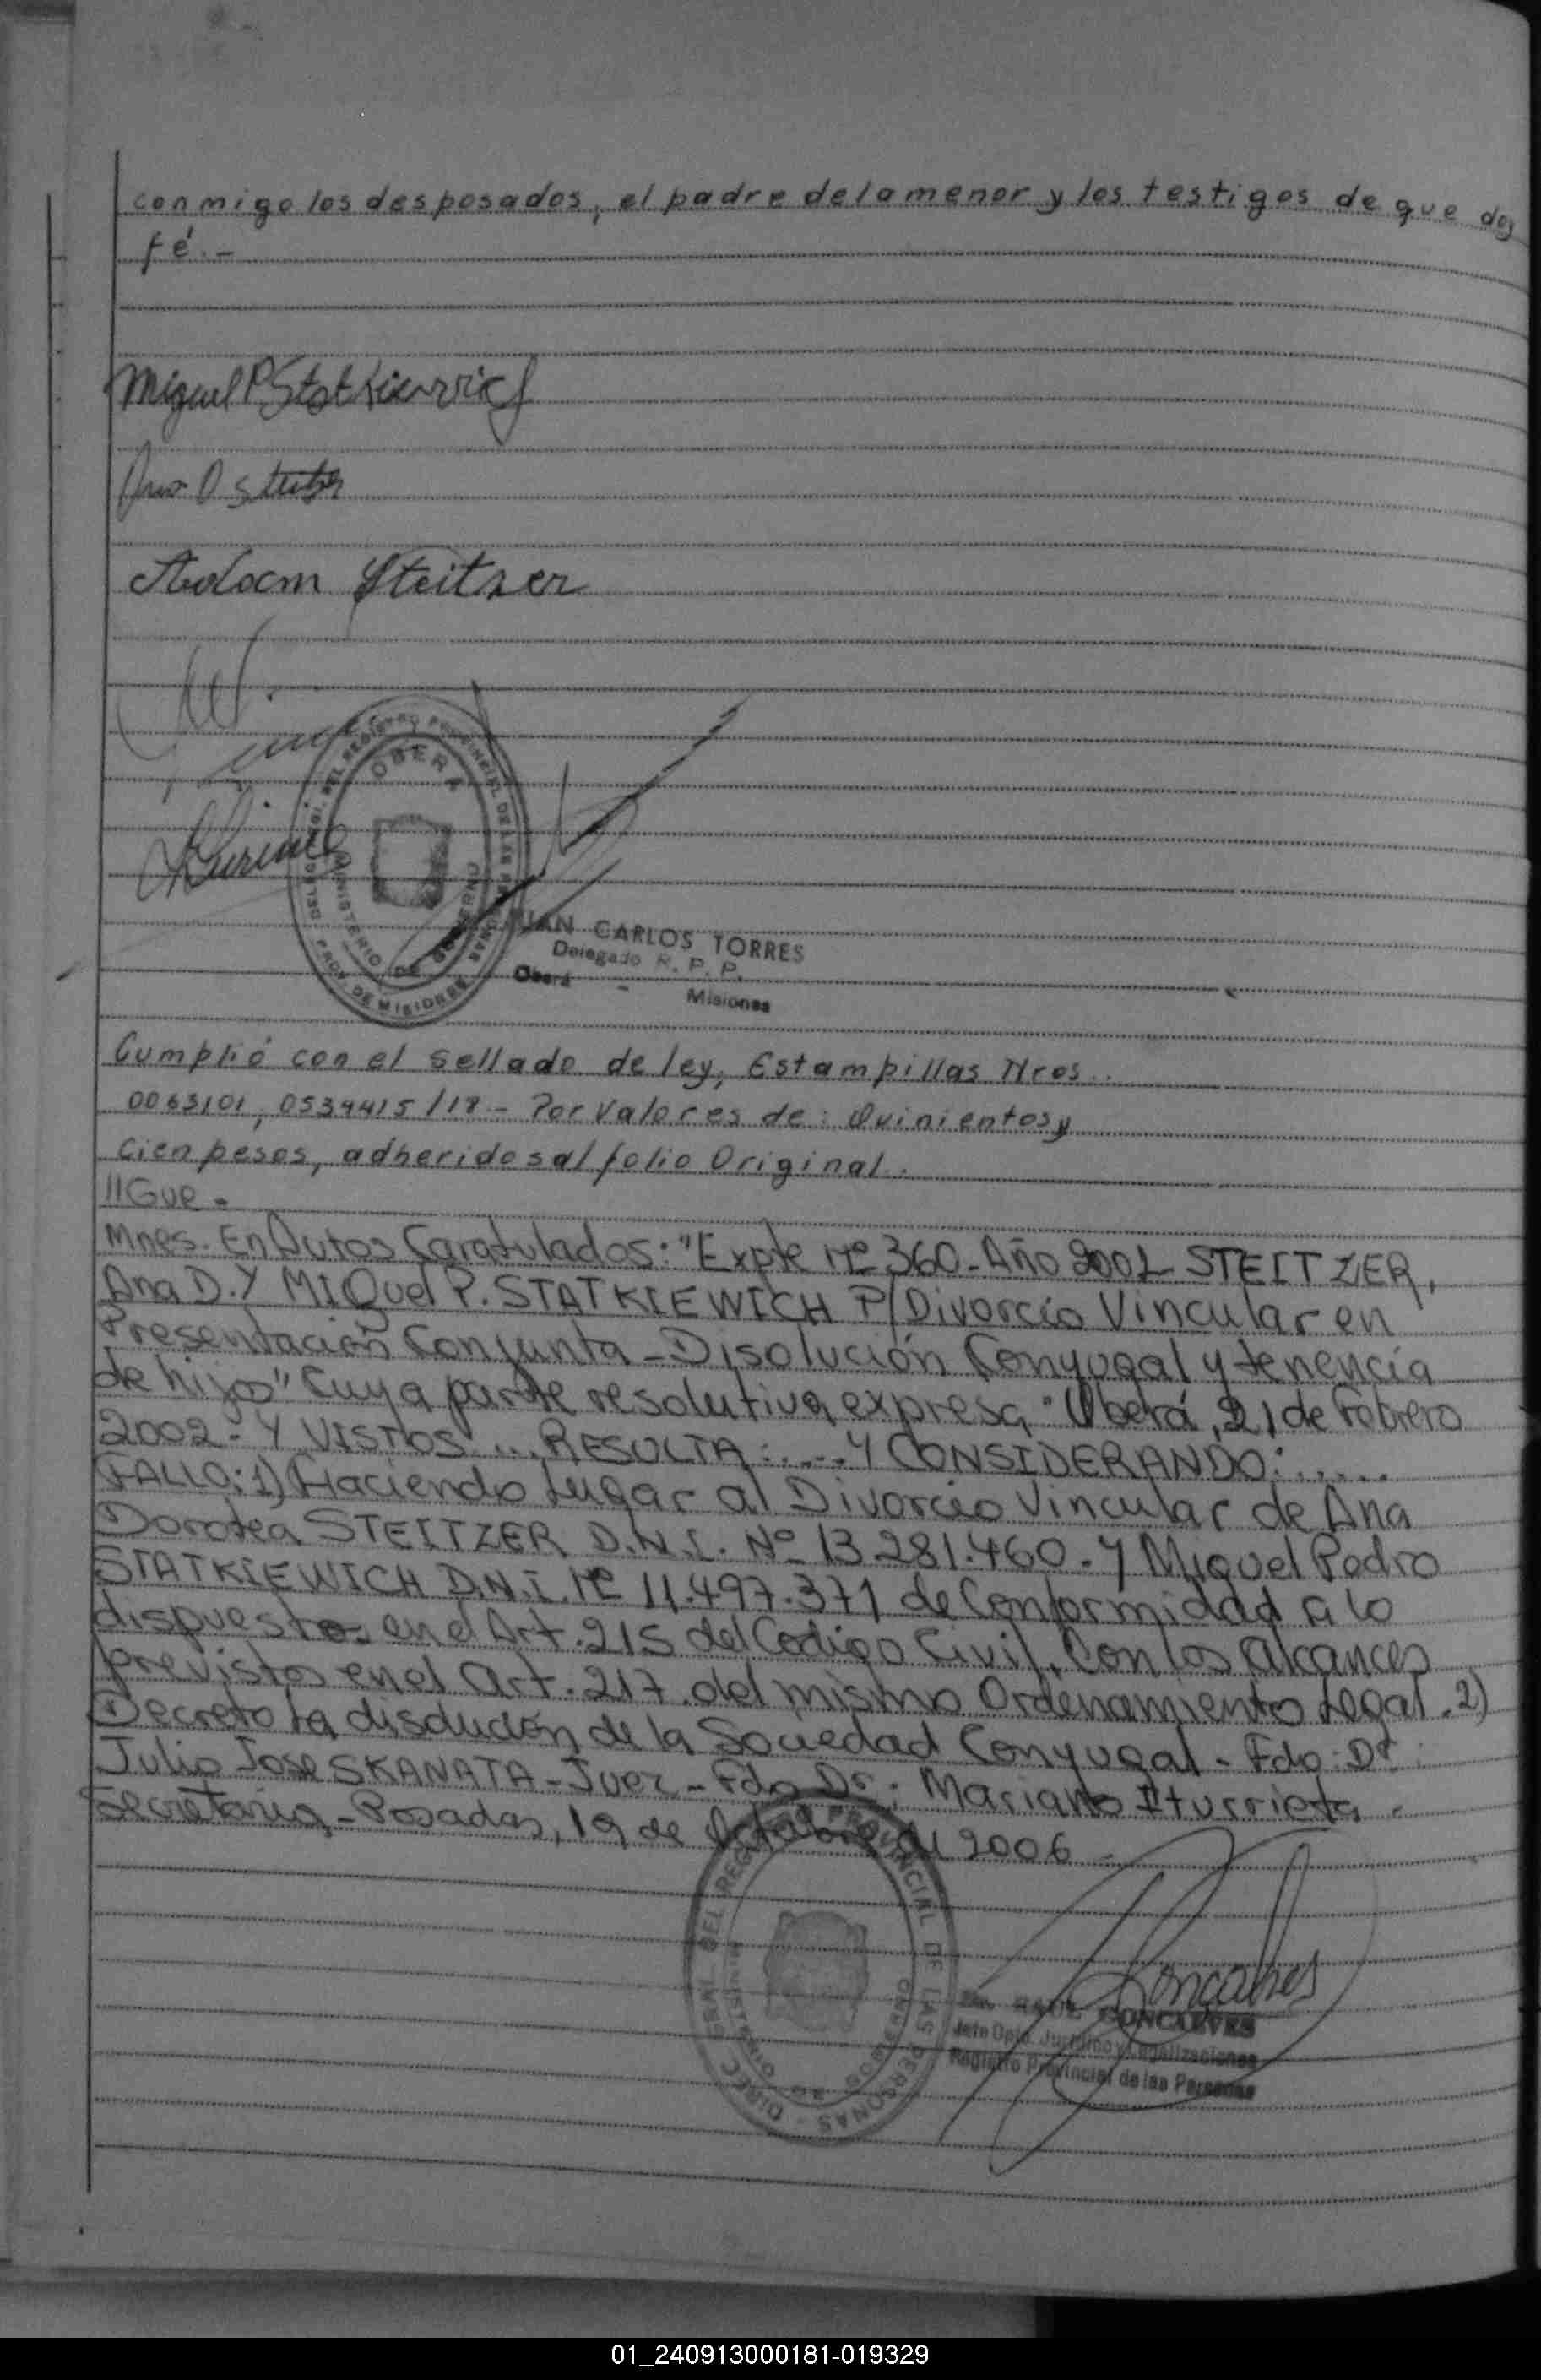 conmigo los desposados, el padre de la menor y los testigos de que doy
fé.-
Miguel P. Statkiewich
Ana D Steitzer
Adam Steitzer
OBERA
JUAN CARLOS TORRES
Delegado R. P. P.
Oberá - Misiones
Cumplió con el sellado de ley, Estampillas Nros.
0063101, 0539415/18.- Por Valores de: Quinientos y
cien pesos, adheridos al folio Original.
//Gue-
Mnes. En Autos Caratulados: "Expte Nº 360-Año 2001 STEITZER,
Ana D. Y MIGuel P. STATKIEWICH P/Divorcio Vincular en
Presentación Conjunta - Disolución Conyugal y tenencia
de hijos" Cuya parte resolutiva expresa, "Oberá, 21 de Febrero
2002.- Y VISTOS ... RESULTA: .... Y CONSIDERANDO: .....
FALLO: 1) Haciendo Lugar al Divorcio Vincular de Ana
Dorotea STEITZER D.N.I. Nº 13.281.460.- Y Miguel Pedro
STATKIEWICH D.N.I. Nº 11.497.371 de Conformidad a lo
dispuesto en el Art. 215 del Codigo Civil, Con los alcances
previstos en el art. 217. del mismo Ordenamiento Legal. 2)
Decreto la disolución de la Sociedad Conyugal - Fdo: Dr:
Julio Jose SKANATA - Juez - Fdo Dr: Mariano Iturrieta -
Secretaria, - Posadas, 19 de Octubre del 2006
Goncalves
RAUL GONCALVES
Jefe Dpto. Jurídico y Legalizaciones
Registro Provincial de las Personas
DIREC. GRAL. DEL REGISTRO PROVINCIAL DE LAS PERSONAS
MINISTERIO DE GOBIERNO
01_240913000181-019329